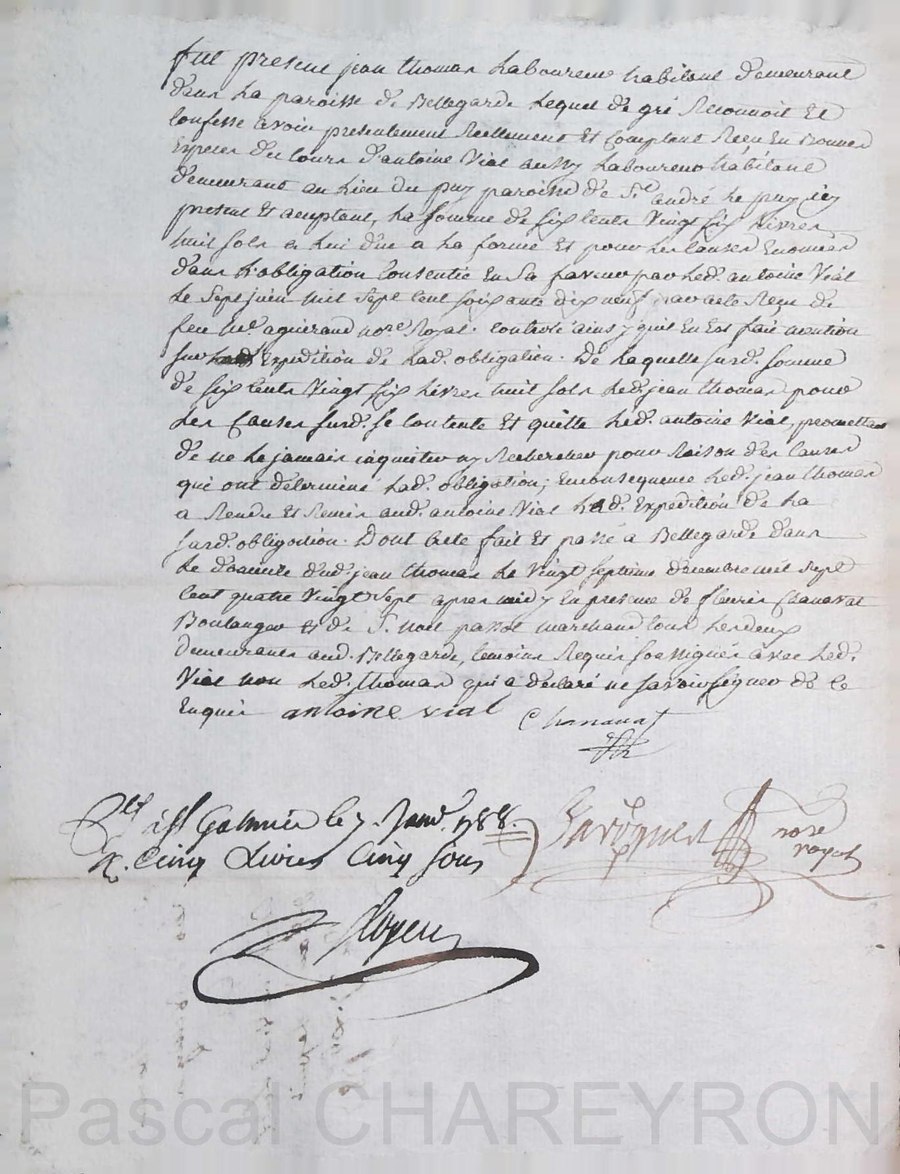 fut present jean thomas Laboureur habitant demeurant
dans La paroisse de Bellegarde Lequel de gré Reconnoit Et
Confesse avoir presentement Reellement Et Comptant Reçu En Bonnes
Especes du Cours d'antoine Vial aussy Laboureur habitant
demeurant au Lieu du puy paroisse de St andré Le puy icy
present Et aceptant, La somme de six Cents Vingt six Livres
huit sols a Lui düe a La forme Et pour Les Causes Enoncées
dans L'obligation Consentie En sa faveur par Led. antoine Vial
Le Sept juin mil Sept Cent soixante dix neuf par acte Reçu de
feu Me aguirand nore Royal. Controlé ainsy qu'il En Est fait mention
sur Expedition de Lad. obligation. De Laquelle surd. somme
de six Cents Vingt six Livres huit sols Led. jean thomas pour
Les Causes surd. se Contente Et quitte Led. antoine Vial, promettant
de ne Le jamais inquieter ny Rechercher pour Raison des Causes
qui ont determiné Lad. obligation; En Consequence Led. jean thomas
a Rendu Et Remis aud. antoine Vial Lad. Expedition de La
surd. obligation. Dont acte fait Et passé a Bellegarde dans
Le domicile dud. jean thomas Le Vingt septieme decembre mil sept
Cent quatre Vingt Sept apres midy En presence de fleurie Chanavat
Boulanger Et de Sr. noel marchand tous Les deux
demeurants aud. Bellegarde, temoins Requis soussignés avec Led.
Vial non Led. thomas qui a declaré ne savoir signer de Ce
Enquis antoine vial Chanavat
Clé a St Galmier le 7. Janv. 1788.
R. Cinq Livres Cinq Sous
nore
royal
Pascal CHAREYRON